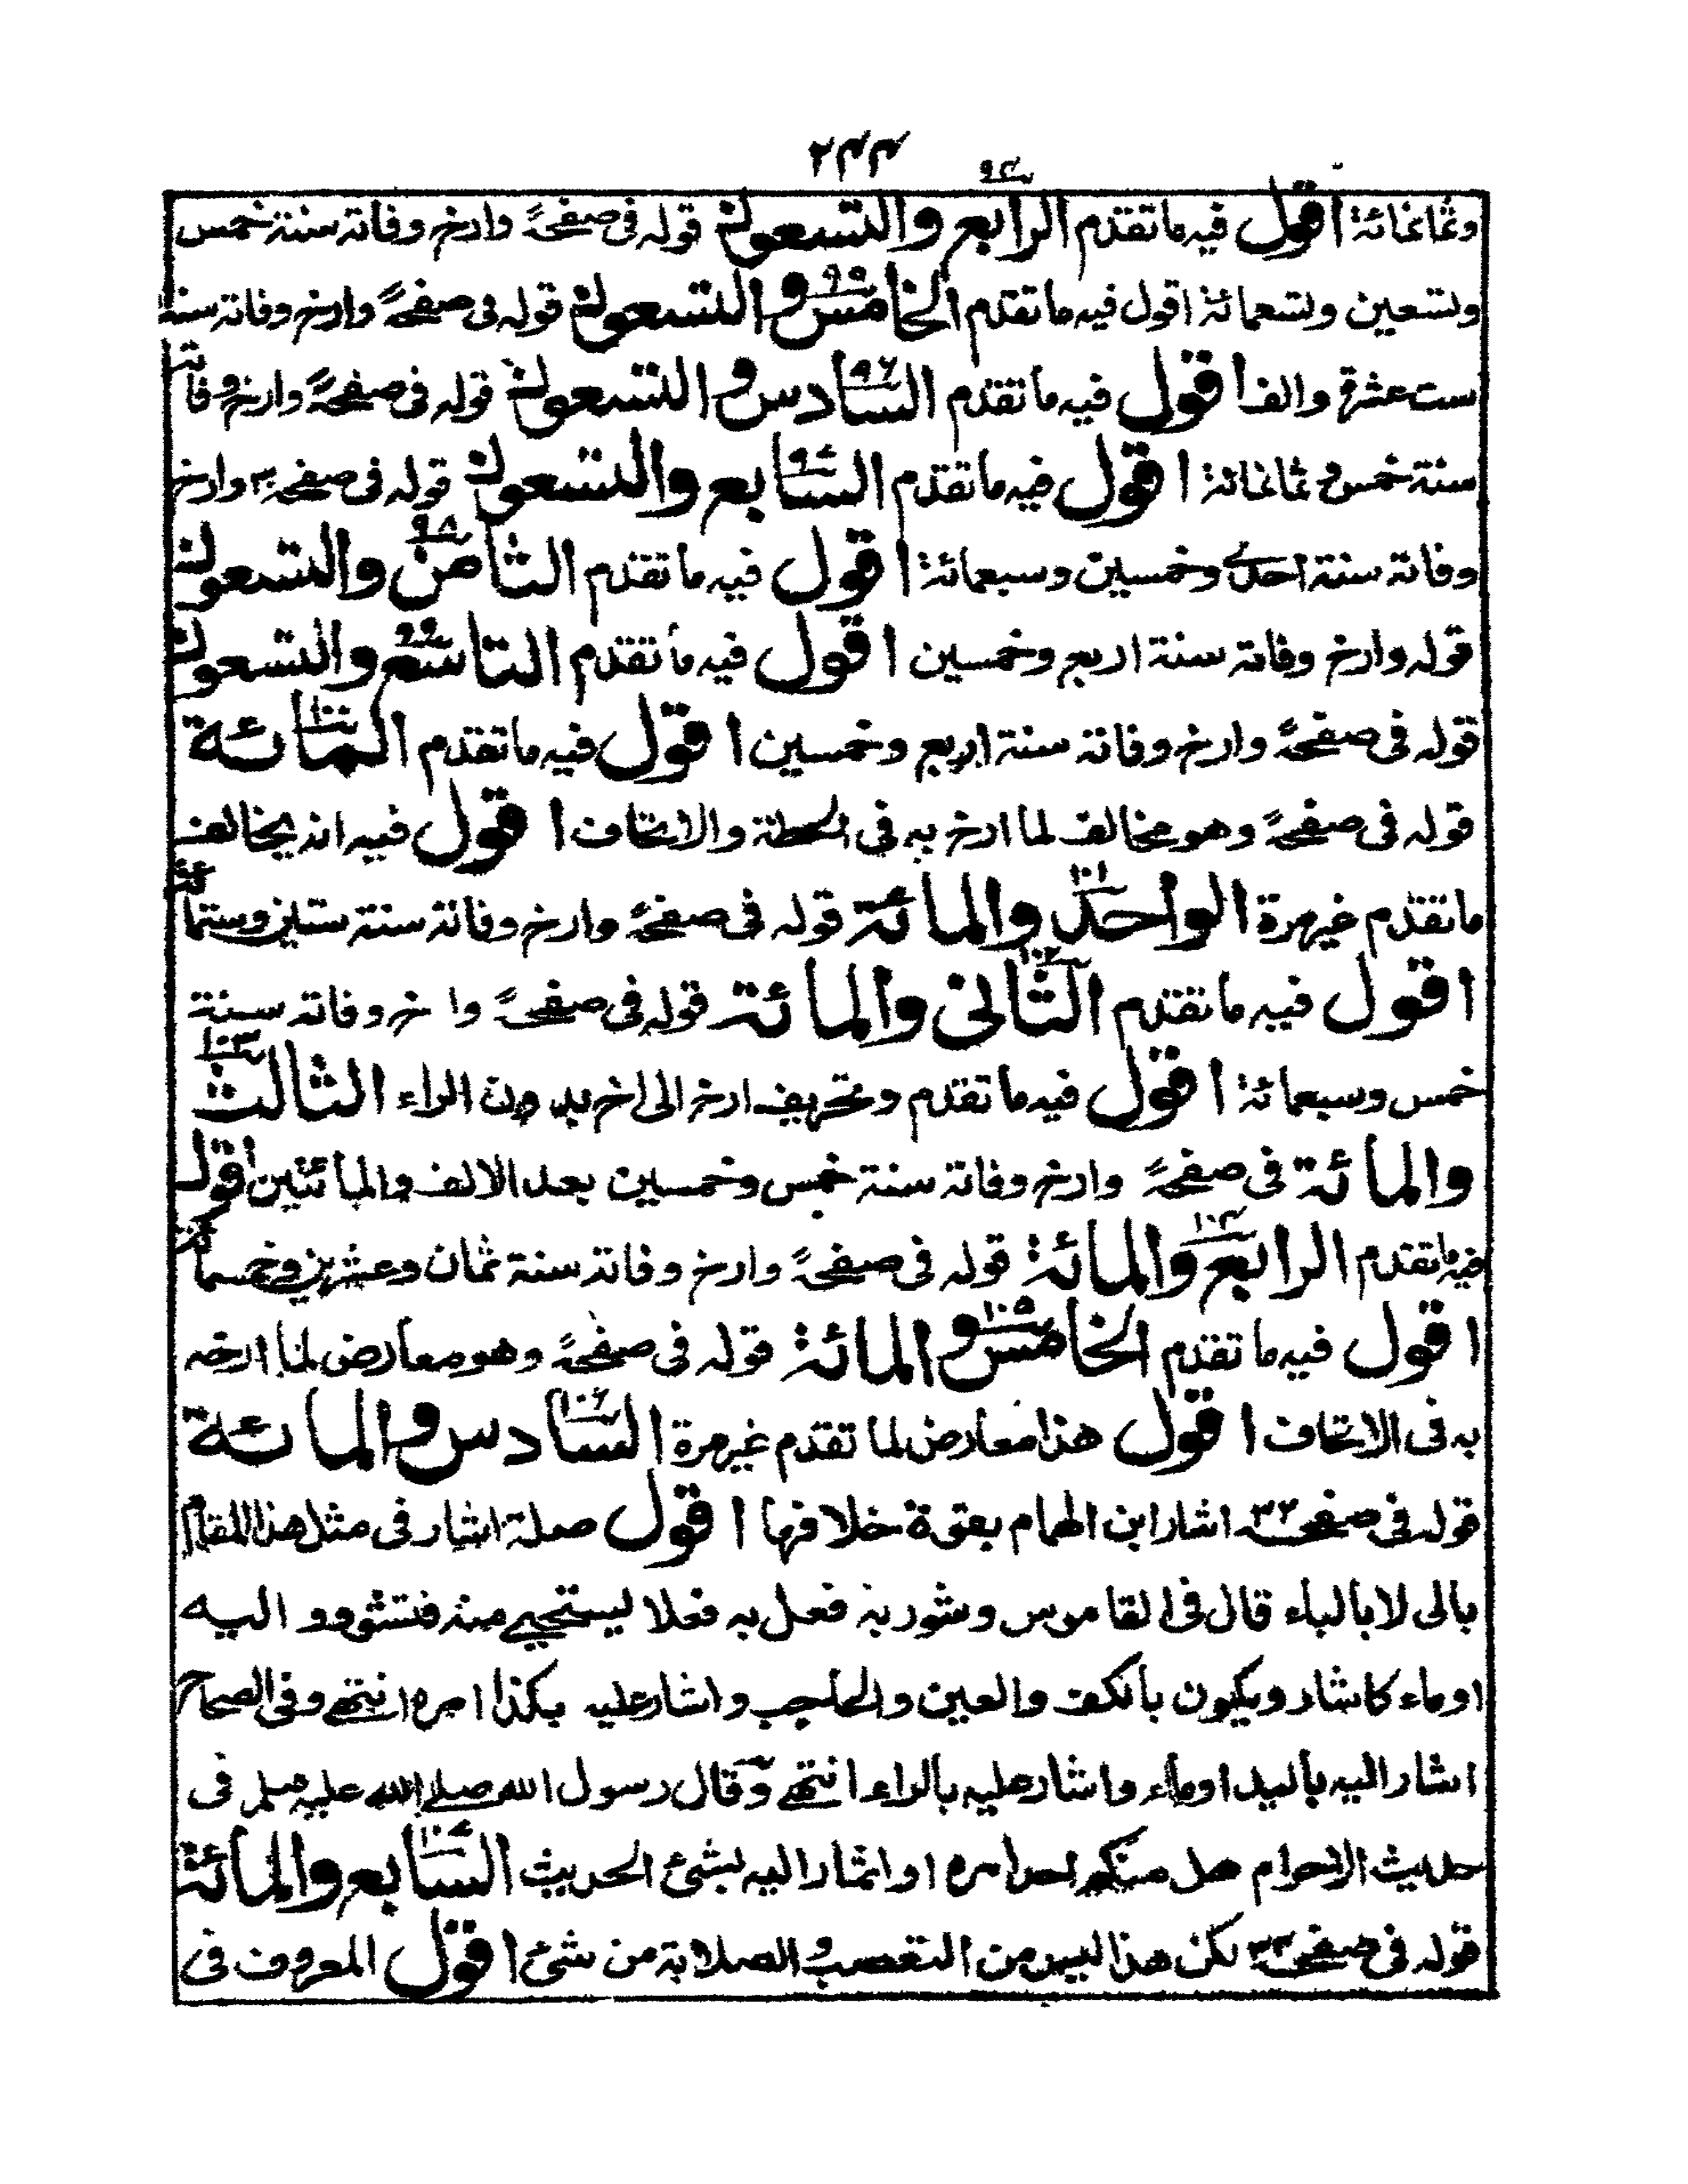 ۲۴۴
وثمانمائة اقول فيه ما تقدم الرابع والتسعون ۹۴ قوله في صفحة وارخ وفاته سنة خمس
وتسعين وتسعمائة اقول فيه ما تقدم الخامس والتسعون ۹۵ قوله في صفحة وارخ وفاته سنة
ست عشرة والف اقول فيه ما تقدم السادس والتسعون ۹۶ قوله في صفحة وارخ وفاته
سنة خمس وثمانمائة اقول فيه ما تقدم السابع والتسعون ۹۷ قوله في صفحة ۳۰ وارخ
وفاته سنة احدى وخمسين وسبعمائة اقول فيه ما تقدم الثامن والتسعون ۹۸
قوله وارخ وفاته سنة اربع وخمسين اقول فيه ما تقدم التاسع والتسعون ۹۹
قوله في صفحة وارخ وفاته سنة اربع وخمسين اقول فيه ما تقدم المائة ۱۰۰
قوله في صفحة وهو مخالف لما ارخ به في الحطة والاتحاف اقول فيه انه يخالف
ما تقدم غير مرة الواحد والمائة ۱۰۱ قوله في صفحة وارخ وفاته سنة ستين وستمائة
اقول فيه ما تقدم الثاني والمائة ۱۰۲ قوله في صفحة وا خ وفاته سنة
خمس وسبعمائة اقول فيه ما تقدم وتحريف ارخ الى اخ بدون الراء الثالث ۱۰۳
والمائة في صفحة وارخ وفاته سنة خمس وخمسين بعد الالف والمائتين اقول
فيه ما تقدم الرابع والمائة ۱۰۴ قوله في صفحة وارخ وفاته سنة ثمان وعشرين وخمسمائة
اقول فيه ما تقدم الخامس والمائة ۱۰۵ قوله في صفحة وهو معارض لما ارخه
به في الاتحاف اقول هذا معارض لما تقدم غير مرة السادس والمائة ۱۰۶
قوله في صفحة ۳۲ اشار ابن الهمام بقوة خلافها اقول صلة اشار في مثل هذا المقام
بالى لا بالباء قال في القاموس وشور به فعل به فعلا يستحيى منه فتشور و اليه
اوماء كاشار ويكون بالكف والعين والحاجب واشار عليه بكذا امره انتهى وفي الصحاح
اشار اليه باليد اوماء واشار عليه بالراء انتهى وقال رسول الله صلى الله عليه وسلم في
حديث الاحرام هل منكم احد امره او اشار اليه بشئ الحديث السابع والمائة ۱۰۷
قوله في صفحة ۳۳ لكن هذا ليس من التعصب والصلابة من شئ اقول المعروف في